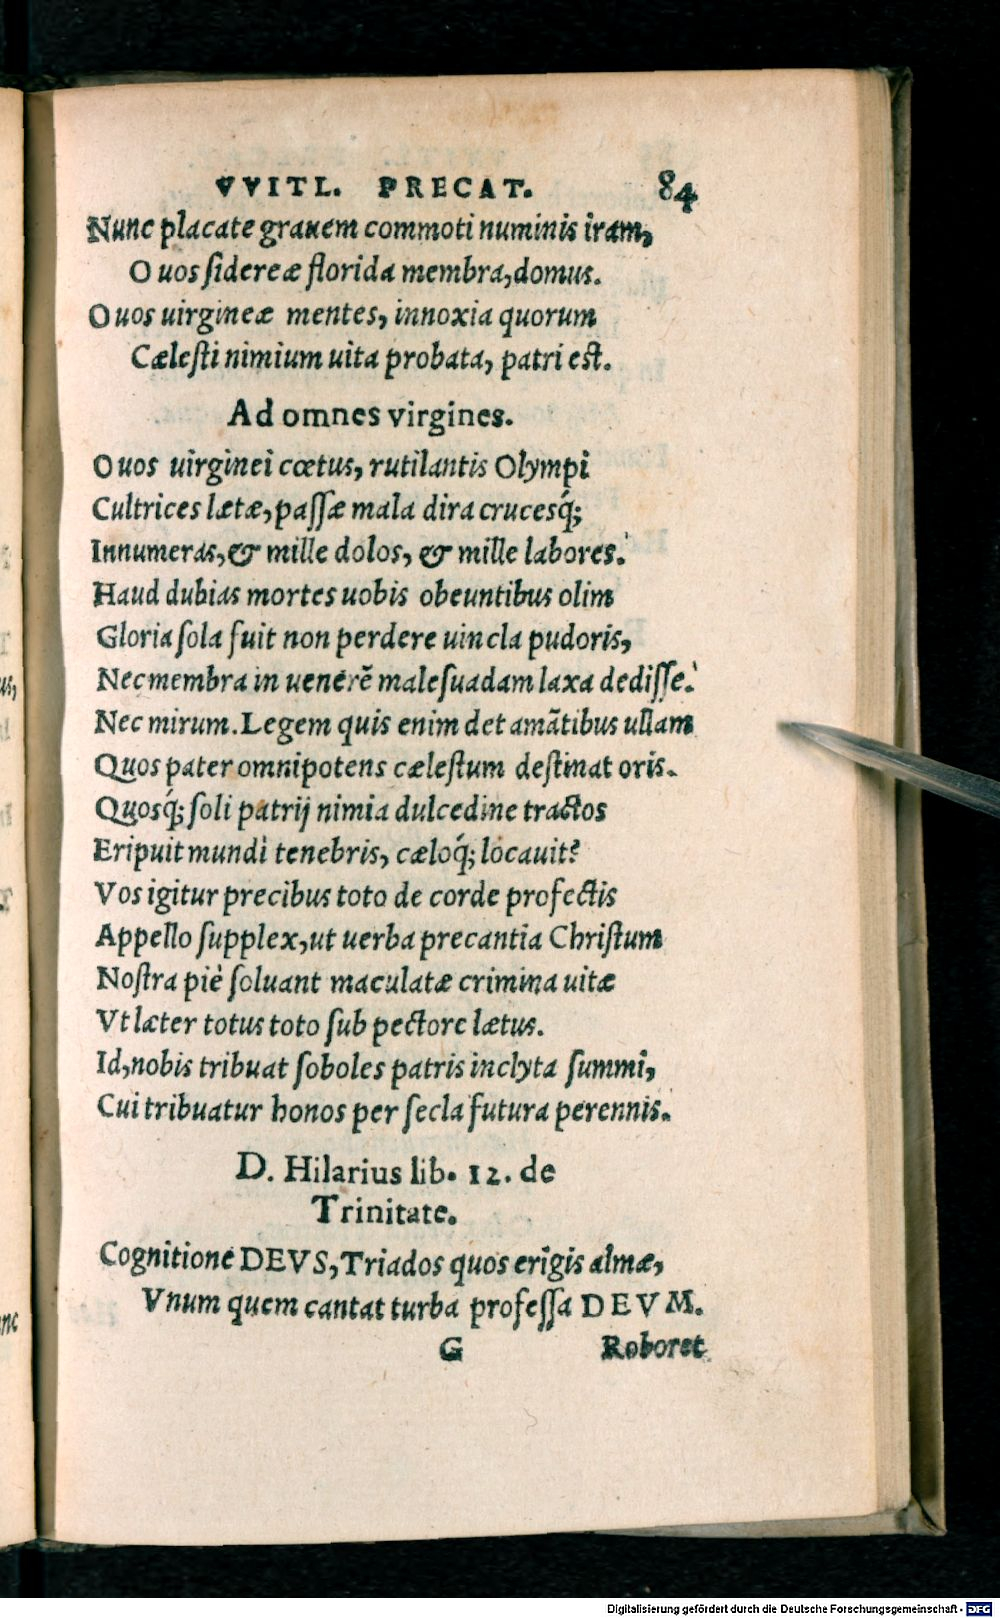 VVITL. PRECAT. 84
Nunc placate grauem commoti numinis iram,
O uos sidereæ florida membra, domus.
O uos uirgineæ mentes, innoxia quorum
Cælesti nimium uita probata, patri est.
Ad omnes virgines.
O uos uirginei cœtus, rutilantis Olympi
Cultrices lætæ, passæ mala dira crucesq́;
Innumeras, & mille dolos, & mille labores.
Haud dubias mortes uobis obeuntibus olim
Gloria sola fuit non perdere uincla pudoris,
Nec membra in uenerẽ malesuadam laxa dedisse.
Nec mirum. Legem quis enim det amãtibus ullam
Quos pater omnipotens cælestum destinat oris.
Quosq́; soli patrij nimia dulcedine tractos
Eripuit mundi tenebris, cæloq́; locauit?
Vos igitur precibus toto de corde profectis
Appello supplex, ut uerba precantia Christum
Nostra piè soluant maculatæ crimina uitæ
Vt læter totus toto sub pectore lætus.
Id, nobis tribuat soboles patris inclyta summi,
Cui tribuatur honos per secla futura perennis.
D. Hilarius lib. 12. de
Trinitate.
Cognitione DEVS, Triados quos erigis almæ,
Vnum quem cantat turba professa DEVM.
G Roboret
us,
nc
Digitalisierung gefördert durch die Deutsche Forschungsgemeinschaft - DFG